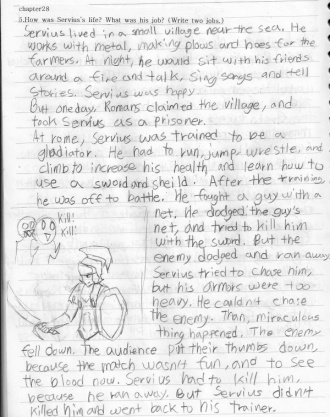 chapter28
3.How was Servius's life? What was his job? (Write two jobs.)
Servius lived in a small village near the sea. He
works with metal, making plows and hoes for the
farmers. At night, he would sit with his friends
around a fire and talk, sing songs and tell
stories. Servius was happy.
But one day. Romans claimed the village, and
took Servius as a prisoner.
At rome, Servius was trained to be a
gladiator. He had to run, jump, wrestle, and
climb to increase his health and learn how to
use a sword and sheild. After the training,
he was off to battle. He fought a guy with a
net. He dodged the guy's
net, and tried to kill him
with the sword. But the
enemy dodged and ran away
Servius tried to chase him,
but his armors were too
heavy. He couldn't chase
the enemy. Than, miraculous
thing happened. The enemy
fell down. The audience put their thumbs down,
because the match wasn't fun, and to see
the blood now. Servius had to kill him,
because he ran away. But Servius didn't
killed him and went back to his trainer.
Kill!
Kill!